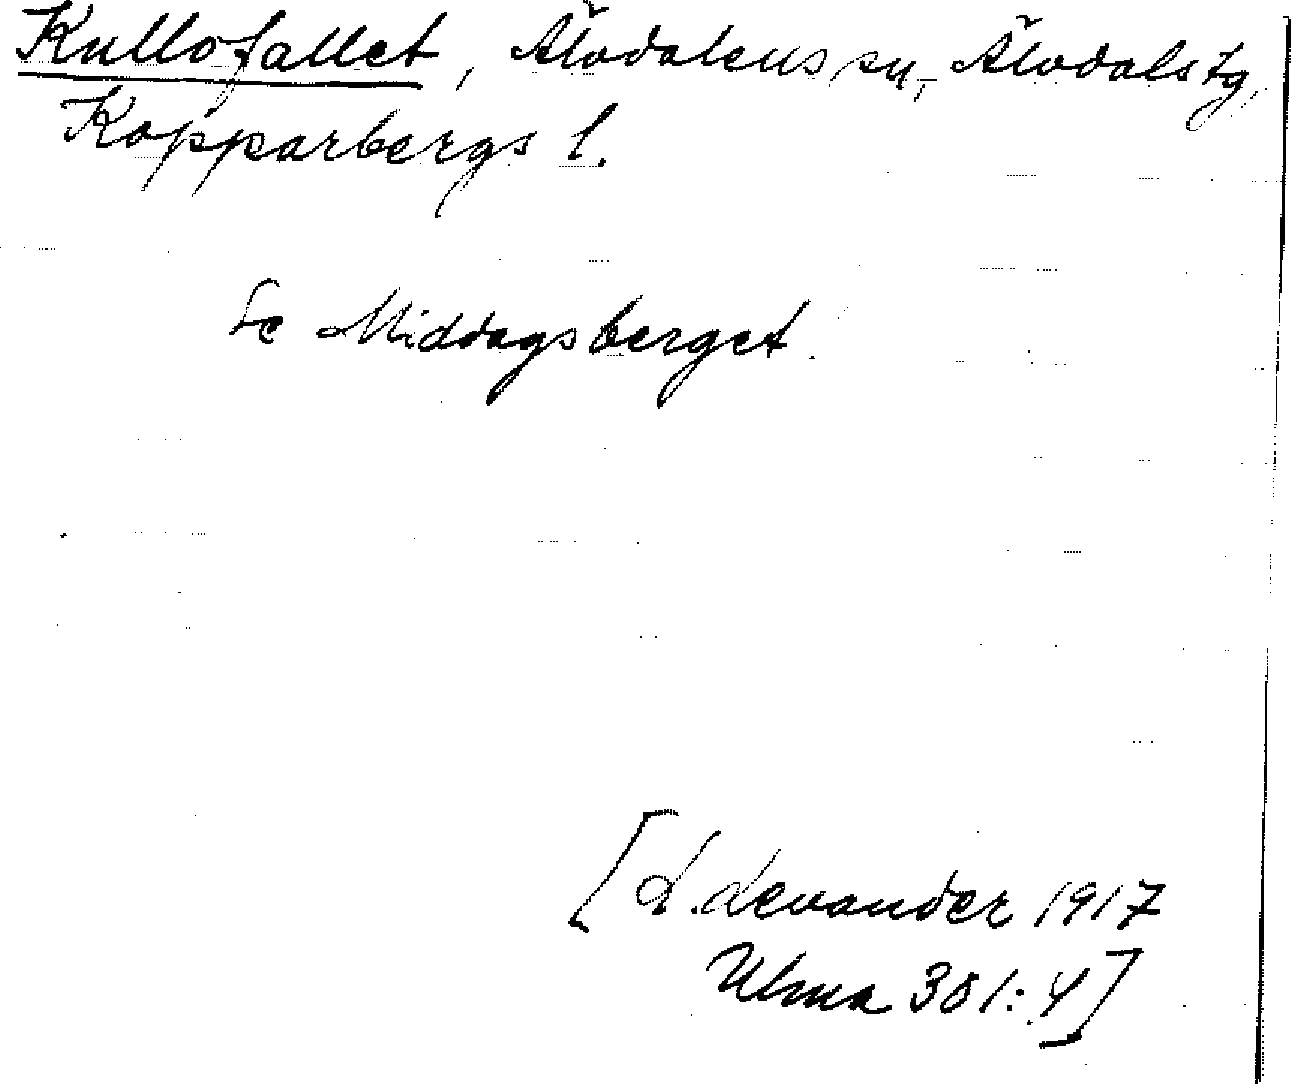 Kullofallet, Älvdalens sn, Älvdals tg,
Kopparbergs l.
Se Middagsberget.
[L. Levander 1917
Ulma 301:4]